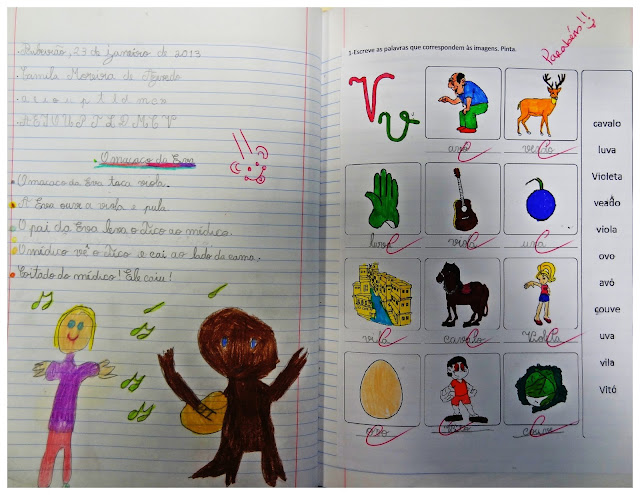 Ribeirão, 23 de Janeiro de 2013
Camila Moreira de Azevedo
a e i o u p t l d m c v
A E I O U P T L D M C V
O macaco da Eva
O macaco da Eva toca viola.
A Eva ouve a viola e pula.
O pai da Eva leva o Tico ao médico.
O médico vê o Tico e cai ao lado da cama.
Coitado do médico! Ele caiu!
Parabéns!!
1-Escreve as palavras que correspondem às imagens. Pinta.
V v
avô veado
luva viola uva
vila cavalo Violeta
ovo couve
cavalo
luva
Violeta
veado
viola
ovo
avó
couve
uva
vila
Vitó